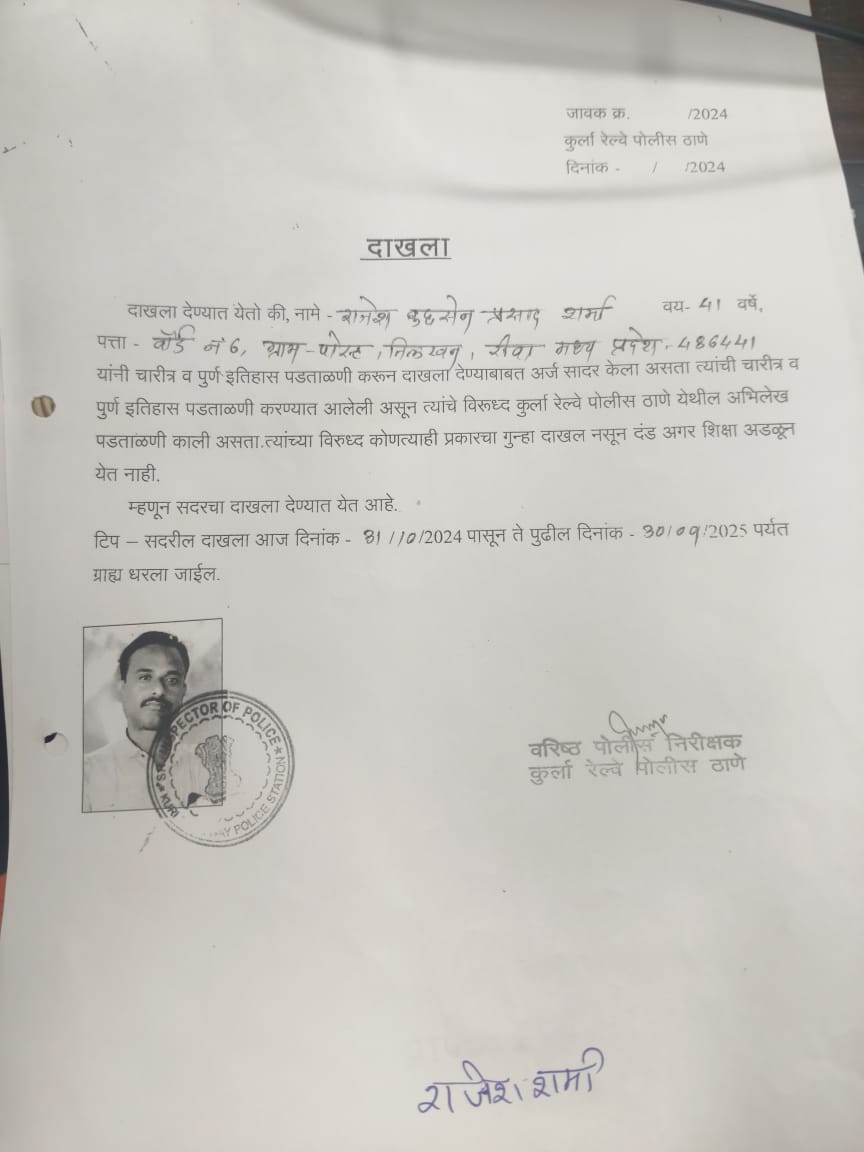 जावक क्र. /2024
कुर्ला रेल्वे पोलीस ठाणे
दिनांक - / /2024
दाखला
दाखला देण्यात येतो की, नामे - राजेश बुद्धसेन प्रसाद शर्मा वय- 41 वर्षे,
पत्ता - वॉर्ड नं 6, ग्राम-पोस्ट, रीवा मध्य प्रदेश- 486441
यांनी चारीत्र व पुर्ण इतिहास पडताळणी करून दाखला देण्याबाबत अर्ज सादर केला असता त्यांची चारीत्र व
पुर्ण इतिहास पडताळणी करण्यात आलेली असून त्यांचे विरूध्द कुर्ला रेल्वे पोलीस ठाणे येथील अभिलेख
पडताळणी काली असता.त्यांच्या विरुध्द कोणत्याही प्रकारचा गुन्हा दाखल नसून दंड अगर शिक्षा अडळून
येत नाही.
म्हणून सदरचा दाखला देण्यात येत आहे.
टिप – सदरील दाखला आज दिनांक - 31/10/2024 पासून ते पुढील दिनांक - 30/09/2025 पर्यत
ग्राह्य धरला जाईल.
INSPECTOR OF POLICE
POLICE STATION
वरिष्ठ पोलीस निरीक्षक
कुर्ला रेल्वे पोलीस ठाणे
राजेश शर्मा